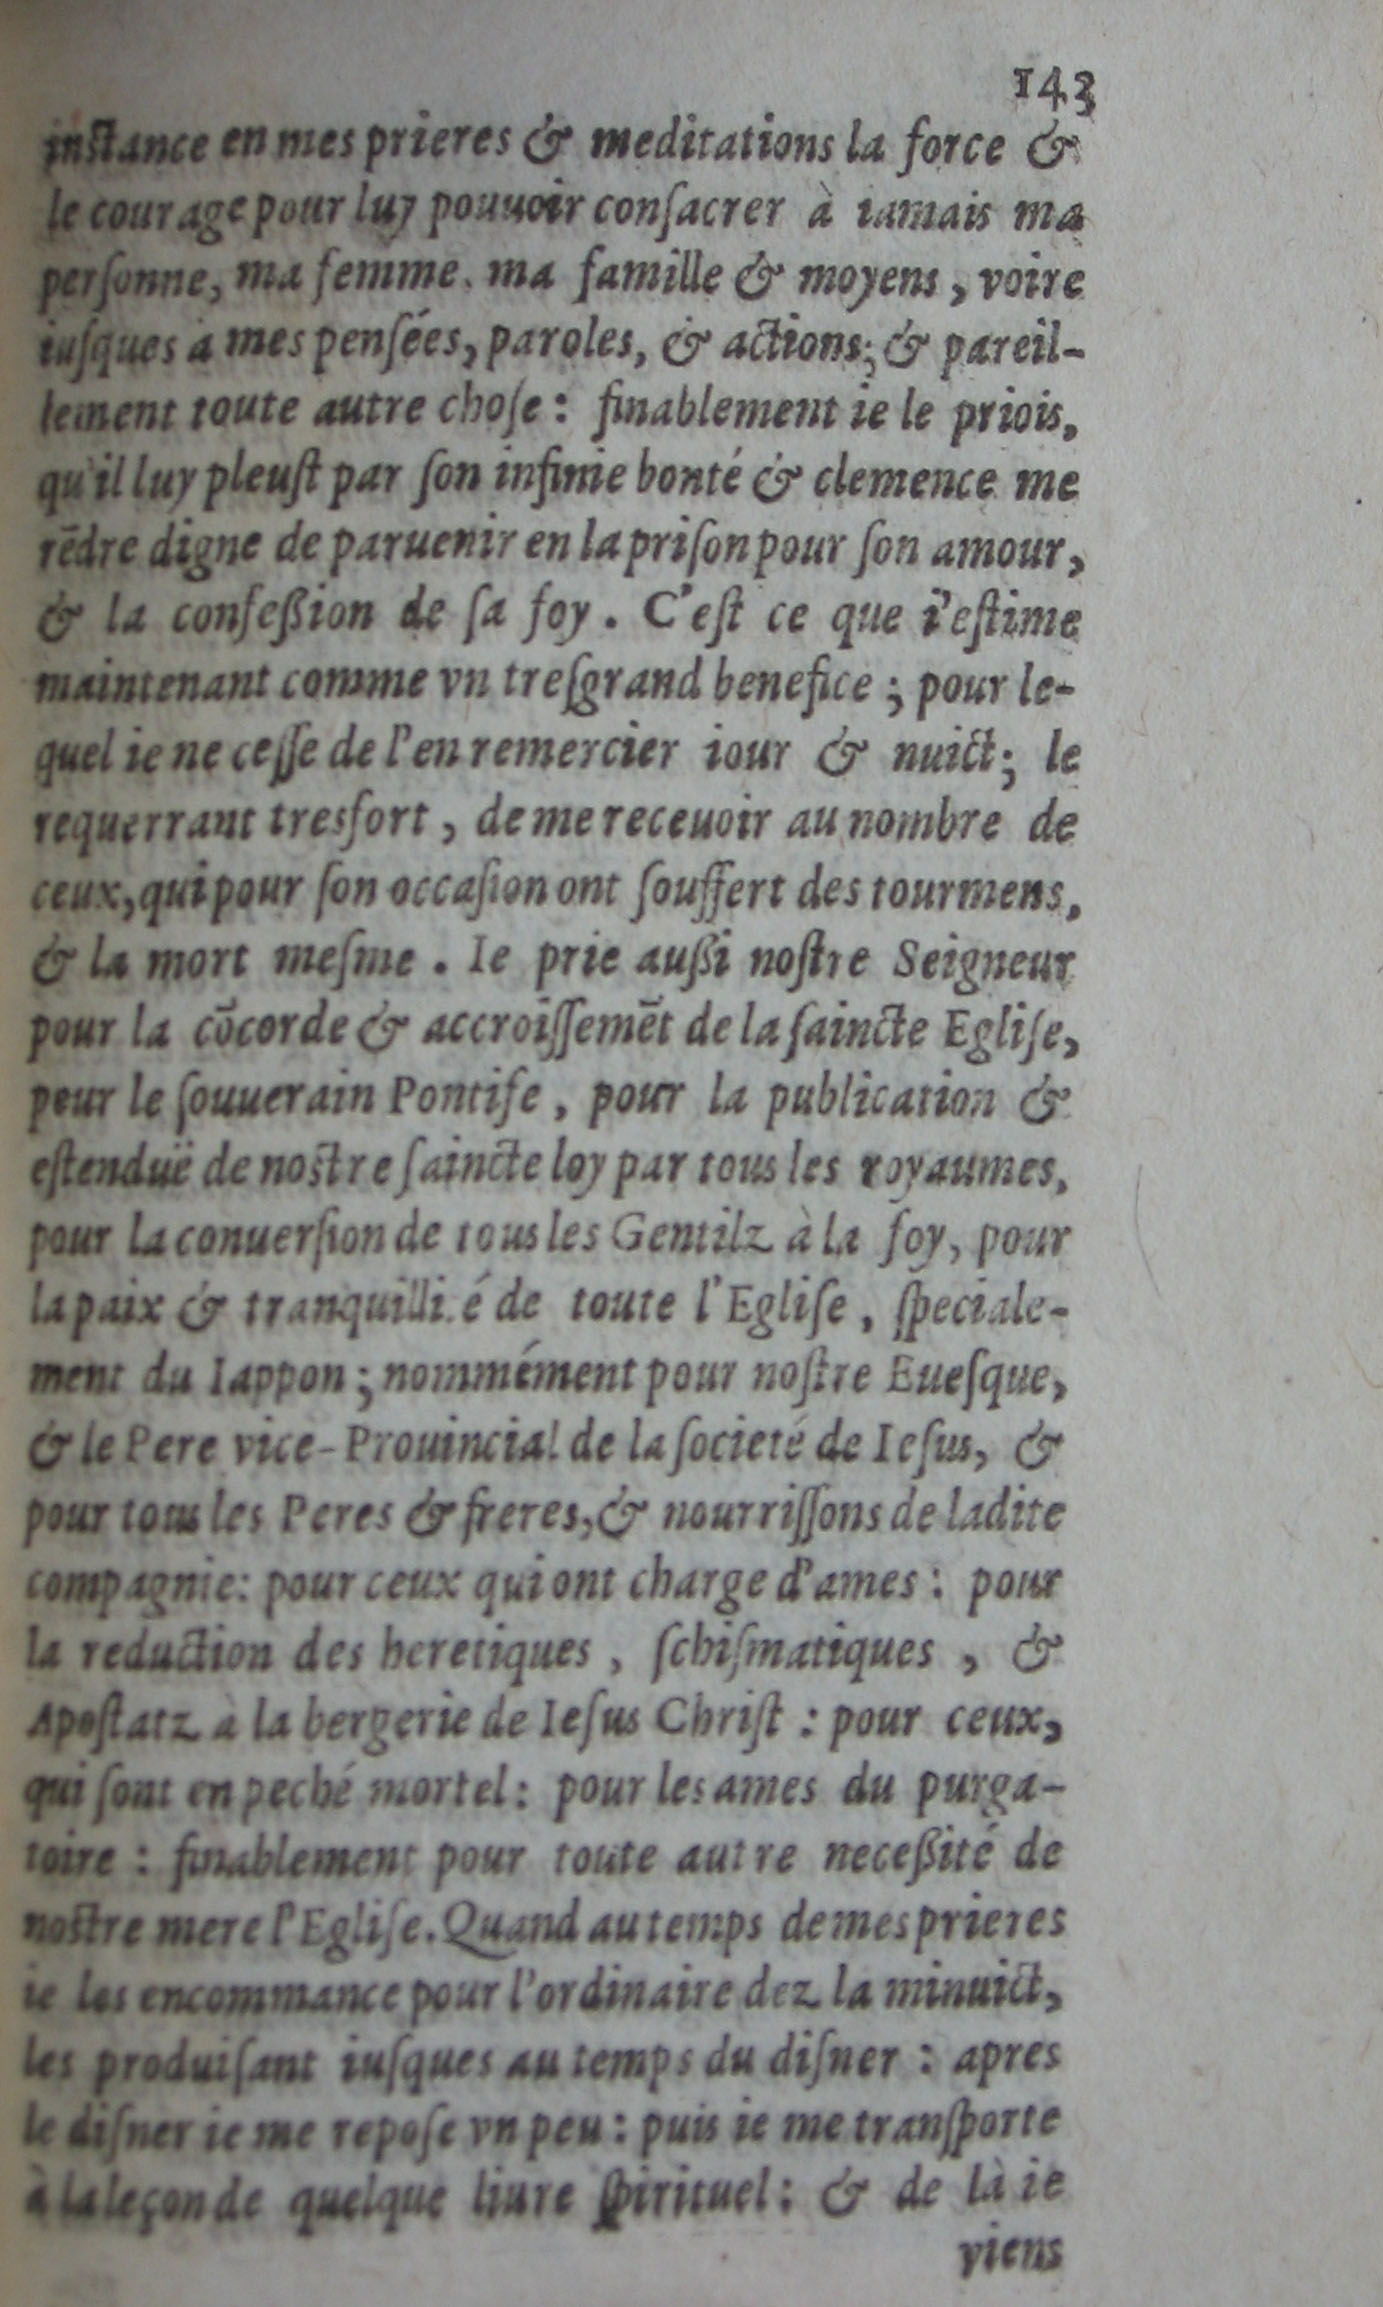 143
inſtance en mes prieres & meditations la force &
le courage pour luy pouuoir conſacrer à iamais ma
perſonne, ma femme. ma famille & moyens, voire
iuſques a mes penſées, paroles, & actions; & pareil-
lement toute autre choſe: finablement ie le priois,
qu'il luy pleuſt par ſon infinie bonté & clemence me
rēdre digne de paruenir en la priſon pour ſon amour,
& la confeßion de ſa foy. C'eſt ce que i'eſtime
maintenant comme vn treſgrand benefice; pour le-
quel ie ne ceſſe de l'en remercier iour & nuict; le
requerrant tresfort, de me receuoir au nombre de
ceux, qui pour ſon occaſion ont ſouffert des tourmens,
& la mort meſme. Ie prie außi noſtre Seigneur
pour la cōcorde & accroiſſemēt de la ſaincte Egliſe,
pour le ſouuerain Pontife, pour la publication &
eſtenduë de noſtre ſaincte loy par tous les royaumes,
pour la conuerſion de tous les Gentilz à la foy, pour
la paix & tranquilli.é de toute l'Egliſe, ſpeciale-
ment du Iappon; nommément pour noſtre Eueſque,
& le Pere vice-Prouincial de la ſocieté de Ieſus, &
pour tous les Peres & freres, & nourriſſons de ladite
compagnie: pour ceux qui ont charge d'ames: pour
la reduction des heretiques, ſchiſmatiques, &
Apoſtatz à la bergerie de Ieſus Chriſt: pour ceux,
qui ſont en peché mortel: pour les ames du purga-
toire: finablement pour toute autre neceßité de
noſtre mere l'Egliſe. Quand au temps de mes prieres
ie les encommance pour l'ordinaire dez la minuict,
les produiſant iuſques au temps du diſner: apres
le diſner ie me repoſe vn peu: puis ie me tranſporte
à la leçon de quelque liure ſpirituel: & de là ie
viens